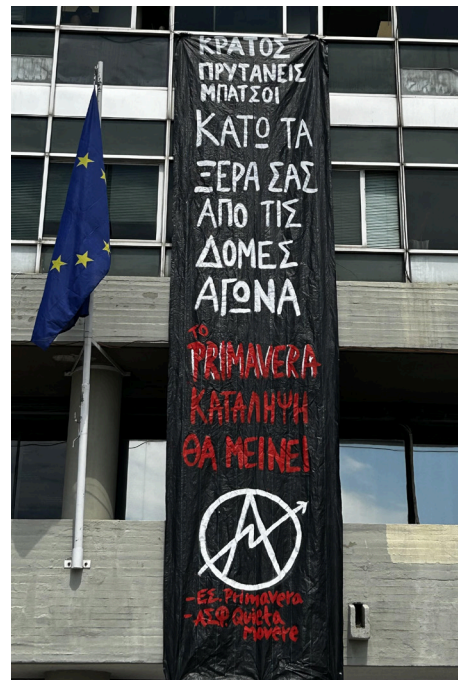 ΚΡΑΤΟΣ
ΠΡΥΤΑΝΕΙΣ
ΜΠΑΤΣΟΙ
ΚΑΤΩ ΤΑ
ΞΕΡΑ ΣΑΣ
ΑΠΟ ΤΙΣ
ΔΟΜΕΣ
ΑΓΩΝΑ
ΤΟ
PRIMAVERA
ΚΑΤΑΛΗΨΗ
ΘΑ ΜΕΙΝΕΙ
-ΕΣ. Primavera
-ΑΣΦ Quieta
Movere